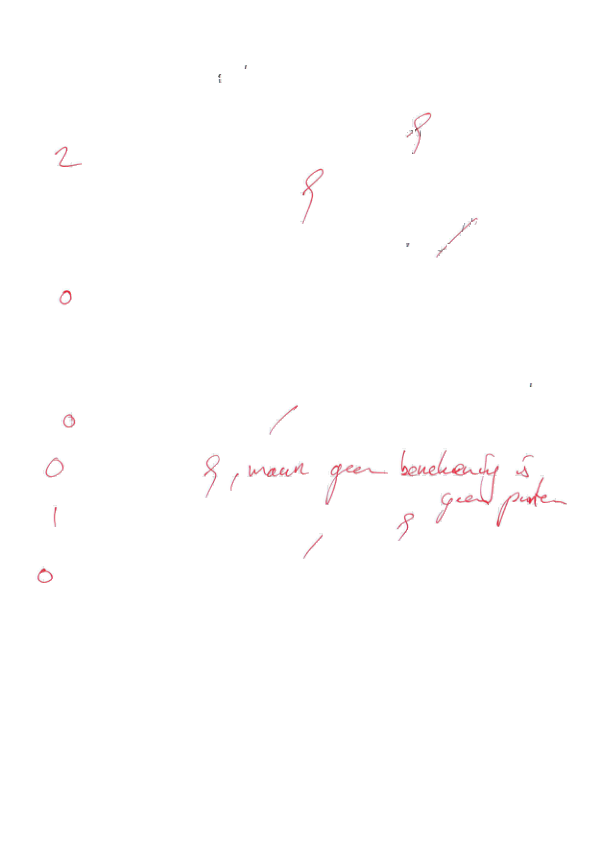 2
0
0
0 , maar geen berekening is
geen punten
1
0